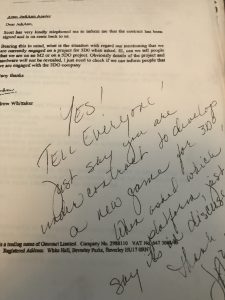 Dear JudiAnn,
Scot has very kindly telephoned me to inform me that the contract has been
signed and is en route back to us.
Bearing this in mind, what is the situation with regard our mentioning that we
are currently engaged on a project for 3DO when asked. IE, can we tell people
that we are on an M2 or on a 3DO project. Obviously details of the project and
hardware will not be revealed, I just need to check if we can inform people that
we are engaged with the 3DO company
thanks
Andrew Whittaker
YES!
TELL EVERYONE!
Just say you are
under contract to develop
a new game for 3DO.
When asked which
platform, just
say
discuss
Thank
is a trading name of Limited Company No. VAT No.
Registered Address White Hall, Beverley Parks, Beverley HU17